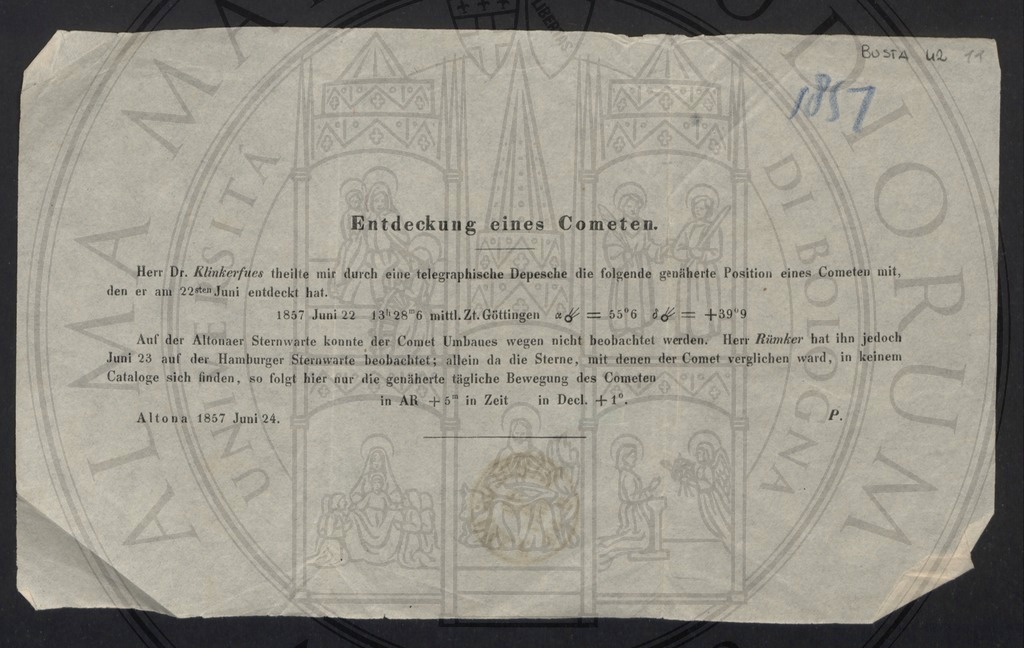 BUSTA 42 11
1857
Entdeckung eines Cometen.
Herr Dr. Klinkerfues theilte mir durch eine telegraphische Depesche die folgende genäherte Position eines Cometen mit,
den er am 22sten Juni entdeckt hat.
1857 Juni 22 13h 28m6 mittl. Zt. Göttingen α☄ = 55°6 δ☄ = +39°9
Auf der Altonaer Sternwarte konnte der Comet Umbaues wegen nicht beobachtet werden. Herr Rümker hat ihn jedoch
Juni 23 auf der Hamburger Sternwarte beobachtet; allein da die Sterne, mit denen der Comet verglichen ward, in keinem
Cataloge sich finden, so folgt hier nur die genäherte tägliche Bewegung des Cometen
in AR + 5m in Zeit in Decl. + 1°.
Altona 1857 Juni 24. P.
ALMA MA DIORUM
UNIVERSITÀ DI BOLOGNA
LIBERTAS